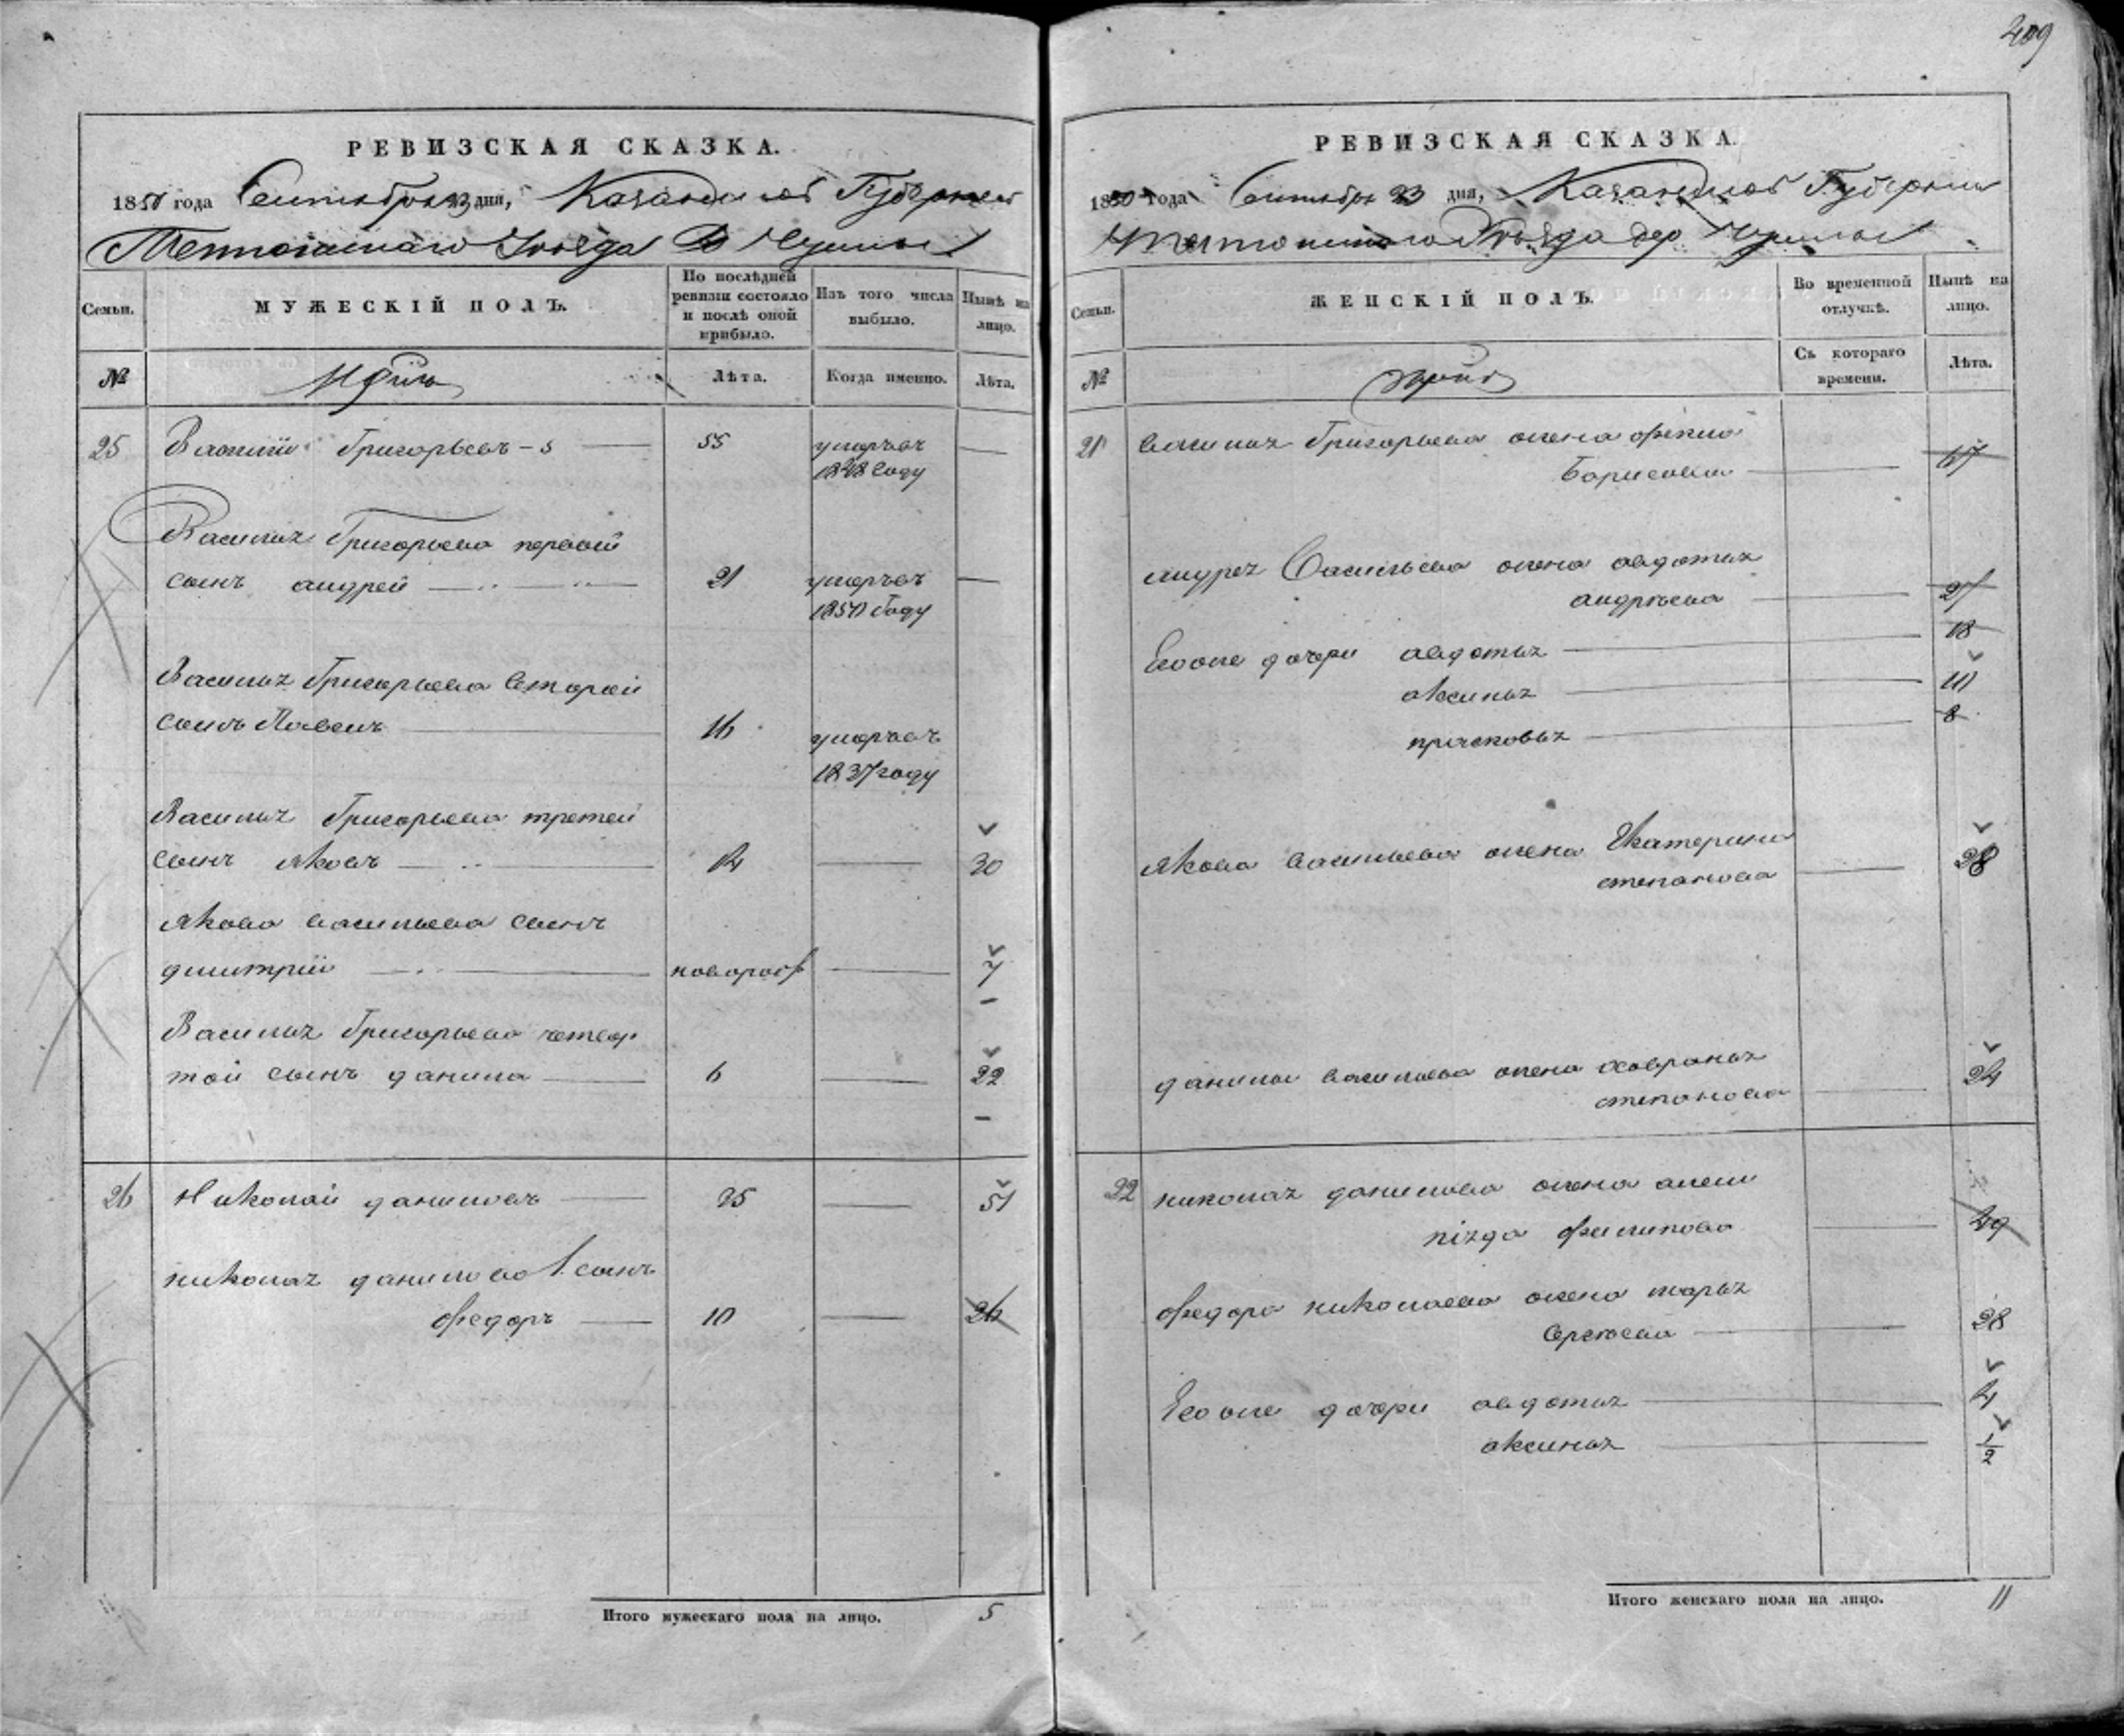 409
РЕВИЗСКАЯ СКАЗКА.
1850 года Сентября 23 дня, Казанской Губернии
Тетюшскаго Уѣзда Д Чушлы
Семьи. МУЖЕСКІЙ ПОЛЪ. По послѣдней ревизіи состояло и послѣ оной прибыло. Изъ того числа выбыло. Нынѣ на лицо.
№ Лѣта. Когда именно. Лѣта.
25 Василій Григорьевъ 55 умеръвъ
1848 году
Василья Григорьева первой
сынъ андрей 21 умеръвъ
1850 Году
Василья Григорьева второй
сынъ Павелъ 16 умеръвъ
1837 году
Василья Григорьева третей
сынъ яковъ 14 30
якова васильева сынъ
дмитрій новорож 7
Василья Григорьева четвер
той сынъ данила 6 22
26 Николай даниловъ 35 51
николая данилова 1. сынъ
Федоръ 10 26
Итого мужескаго пола на лицо. 5
РЕВИЗСКАЯ СКАЗКА.
1850 года Сентября 23 дня, Казанской Губернии
Тетюшскаго Уѣзда дер Чушлы
Семьи. ЖЕНСКІЙ ПОЛЪ. Во временной отлучкѣ. Нынѣ на лицо.
№ Съ котораго времени. Лѣта.
василья Григорьева жена
Борисова 67
андрея Васильева жена авдотья
андрѣева
Евоже дочери авдотья 18
аксинья
прасковья 8
якова васильева жена Екатерина
степанова 28
данилы васильева жена хавронья
степанова 24
22 николая данилова жена
филипова 49
федора николаева жена марья
Сергѣева 28
Евоже дочери авдотья 4
аксинья 1/2
Итого женскаго пола на лицо. 11